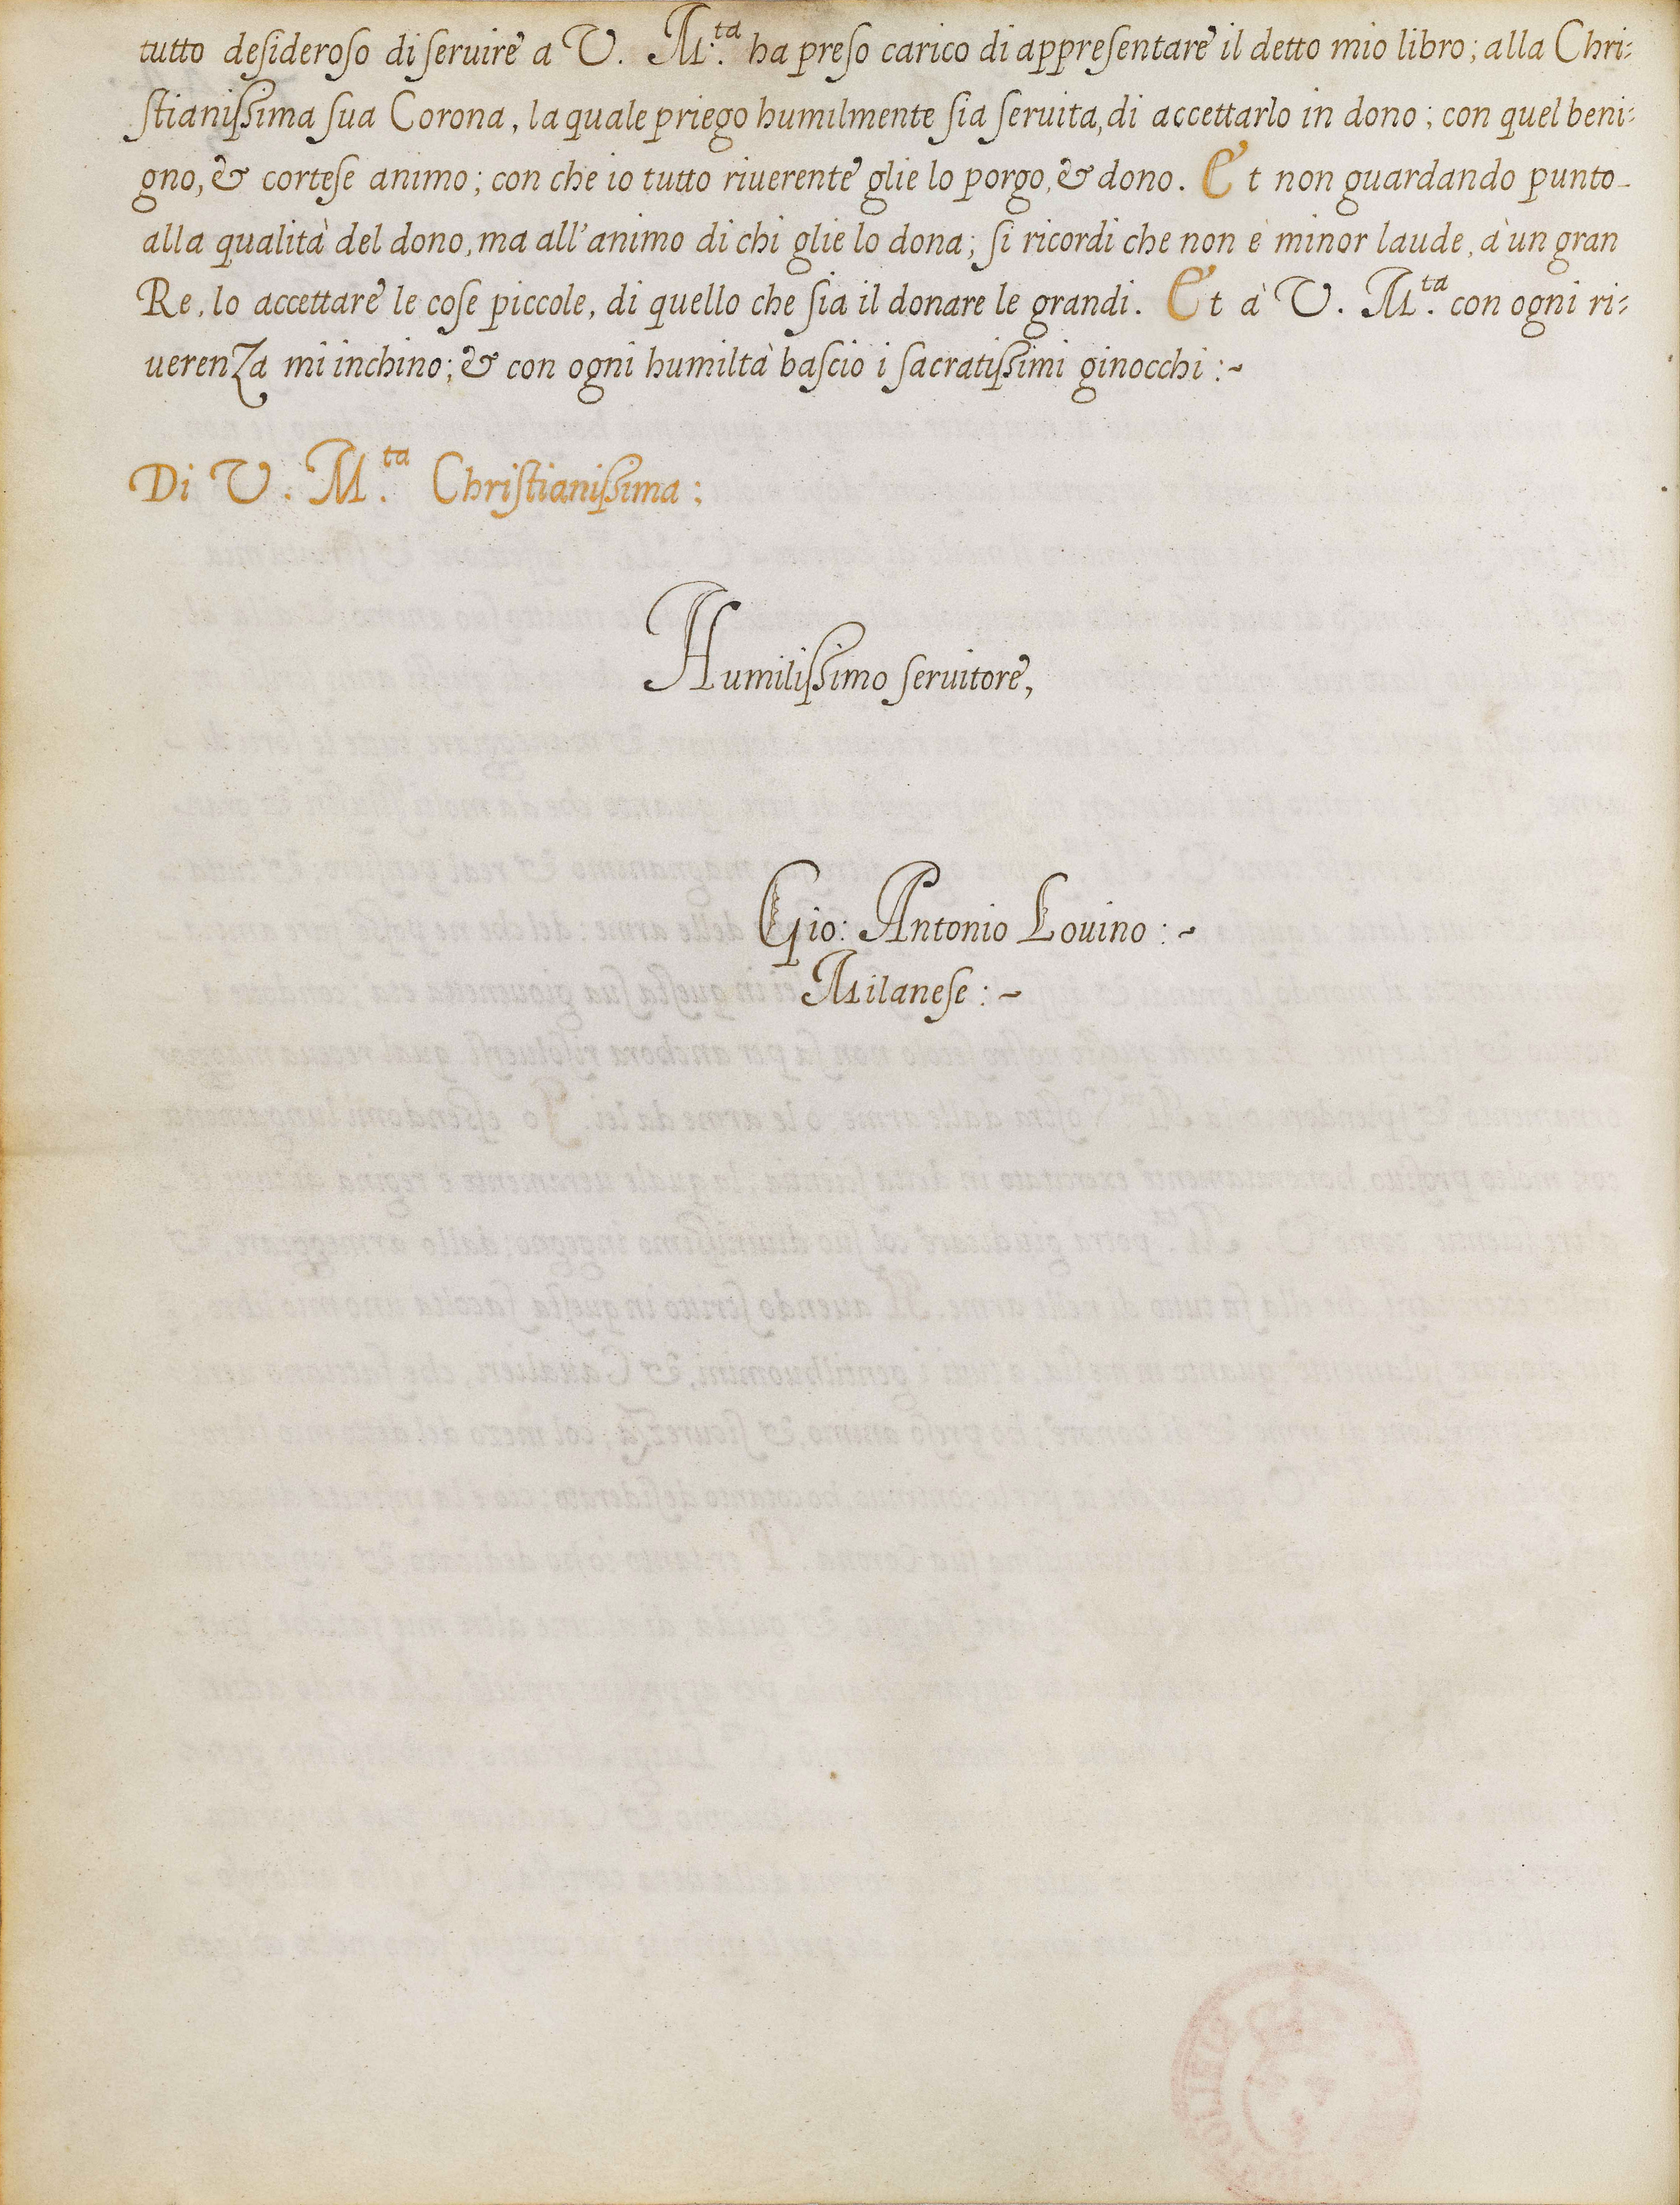 tutto desideroso di seruire a V. M.ta ha preso carico di appresentare il detto mio libro; alla Chri:
stianissima sua Corona, la quale priego humilmente sia seruita, di accettarlo in dono; con quel beni:
gno, & cortese animo; con che io tutto riuerente glie lo porgo, & dono. Et non guardando punto
alla qualità del dono, ma all'animo di chi glie lo dona; si ricordi che non è minor laude, à un gran
Re, lo accettare le cose piccole, di quello che sia il donare le grandi. Et à V. M.ta con ogni ri:
uerenza mi inchino; & con ogni humiltà bascio i sacratissimi ginocchi :~
Di V. M.ta Christianissima:
Humilissimo seruitore,
Gio: Antonio Louino :~
Milanese :~